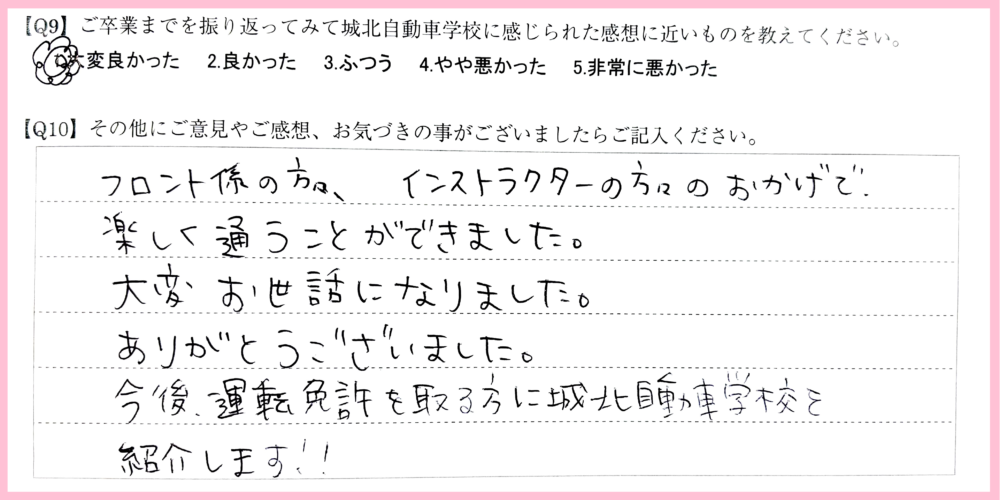 【Q9】ご卒業までを振り返ってみて城北自動車学校に感じられた感想に近いものを教えてください。
1.大変良かった 2.良かった 3.ふつう 4.やや悪かった 5.非常に悪かった
【Q10】その他にご意見やご感想、お気づきの事がございましたらご記入ください。
フロント係の方々、インストラクターの方々のおかげで、
楽しく通うことができました。
大変お世話になりました。
ありがとうございました。
今後、運転免許を取る方に城北自動車学校を
紹介します!!